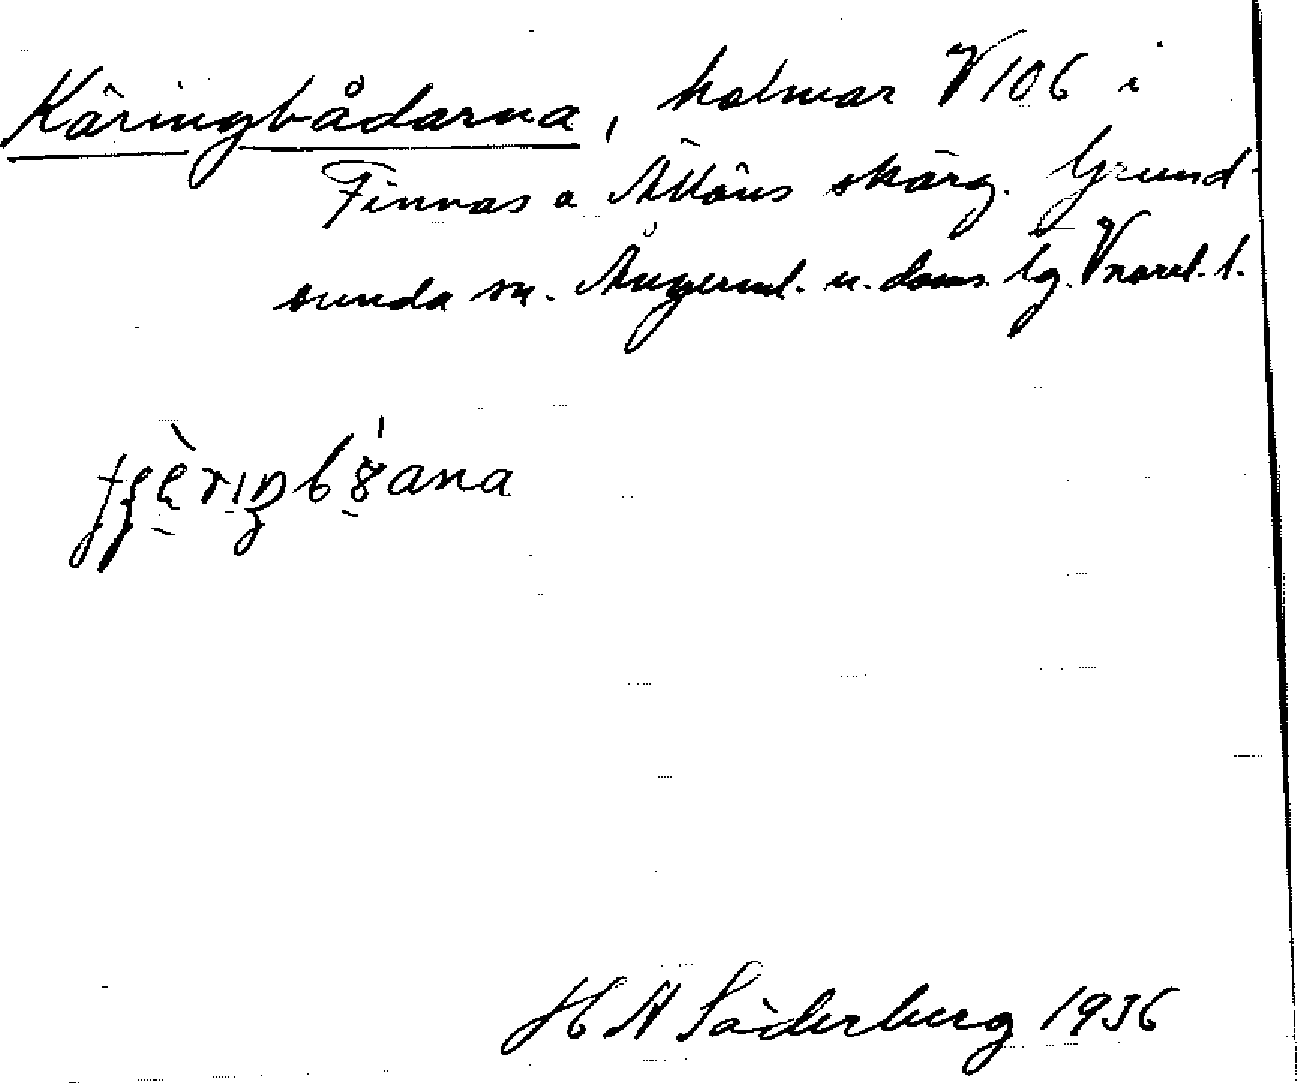 Käringbådarna, holmar V 106 i
Finnäs o Millöns skärg. Grund-
sunda sn. Ångerml. n. doms. lg. Vnorrl. l.
H N Söderberg 1936